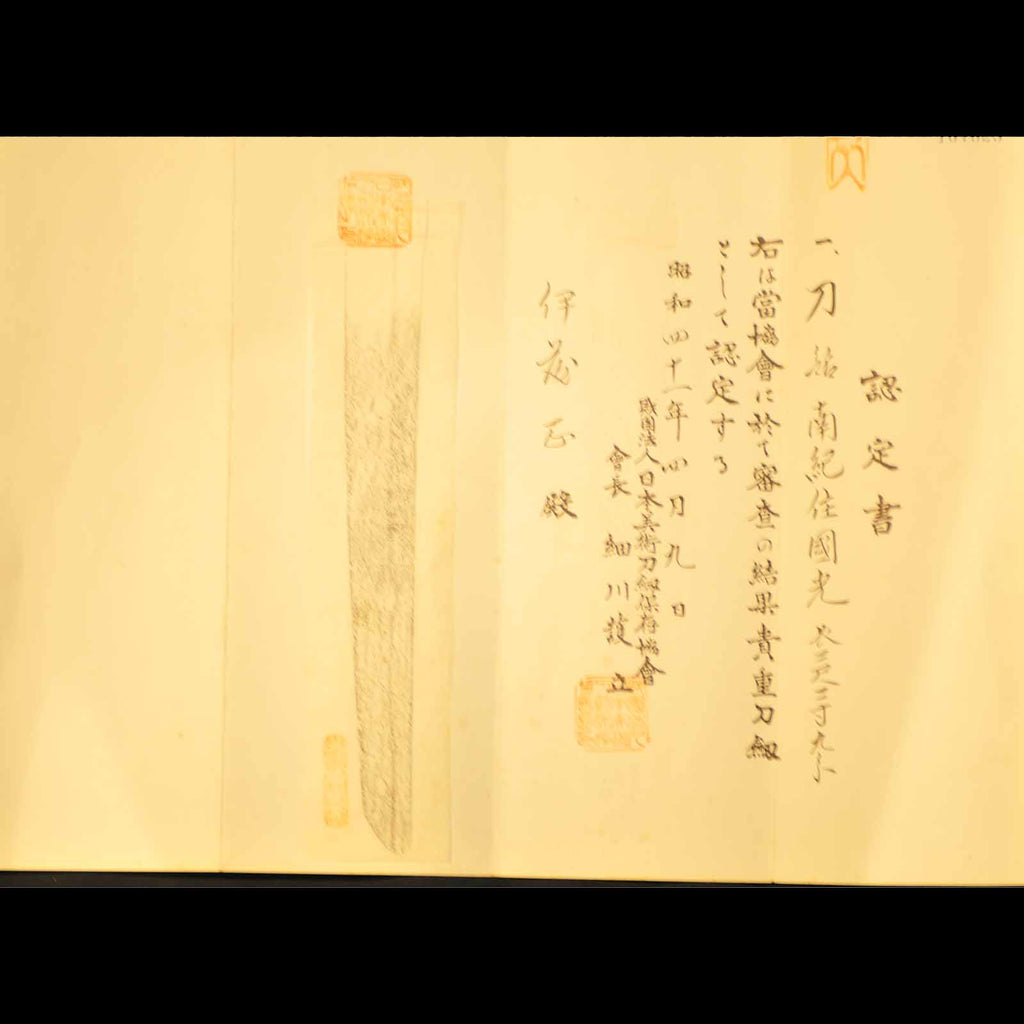 認定書
一、刀 銘 南紀住國光 長二尺二寸九分
右は當協會に於て審査の結果貴重刀劔
として認定する
昭和四十一年四月九日
財団法人日本美術刀劔保存協會
會長 細川護立
伊 正 殿